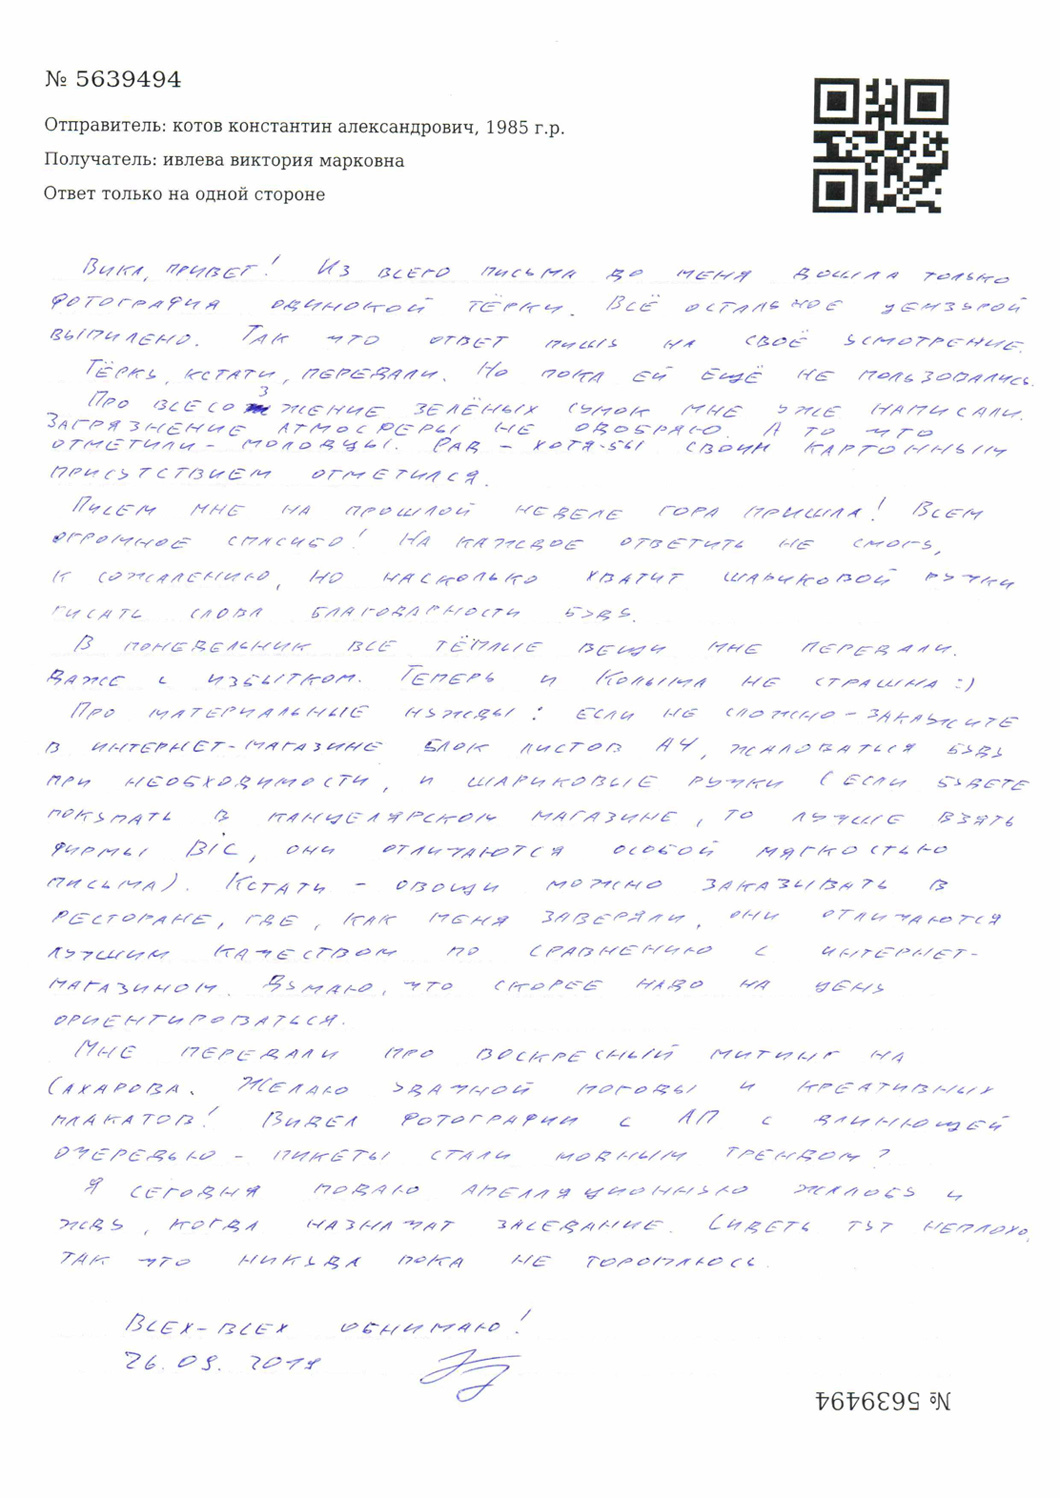 № 5639494
Отправитель: котов константин александрович, 1985 г.р.
Получатель: ивлева виктория марковна
Ответ только на одной стороне
Вика, привет! Из всего письма до меня дошла только
фотография одинокой тёрки. Всё остальное цензурой
выпилено. Так что ответ пишу на своё усмотрение.
Тёрку, кстати, передали. Но пока ей ещё не пользовались.
Про всесозжение зелёных сумок мне уже написали.
Загрязнение атмосферы не одобряю. А то что
отметили - молодцы. Рад - хотя-бы своим картонным
присутствием отметился.
Писем мне на прошлой неделе гора пришла! Всем
огромное спасибо! На каждое ответить не смогу,
к сожалению, но насколько хватит шариковой ручки
писать слова благодарности буду.
В понедельник все тёплые вещи мне передали.
Даже с избытком. Теперь и Колыма не страшна :)
Про материальные нужды: если не сложно - закажите
в интернет-магазине блок листов А4, жаловаться буду
при необходимости, и шариковые ручки (если будете
покупать в канцелярском магазине, то лучше взять
фирмы BiC, они отличаются особой мягкостью
письма). Кстати - овощи можно заказывать в
ресторане, где, как меня заверяли, они отличаются
лучшим качеством по сравнению с интернет-
магазином. Думаю, что скорее надо на цену
ориентироваться.
Мне передали про воскресный митинг на
Сахарова. Желаю удачной погоды и креативных
плакатов! Видел фотографии с АП с длиннющей
очередью - пикеты стали модным трендом?
Я сегодня подаю апелляционную жалобу и
жду, когда назначат заседание. Сидеть тут неплохо,
так что никуда пока не тороплюсь.
Всех-всех обнимаю!
26.09.2019
№ 5639494